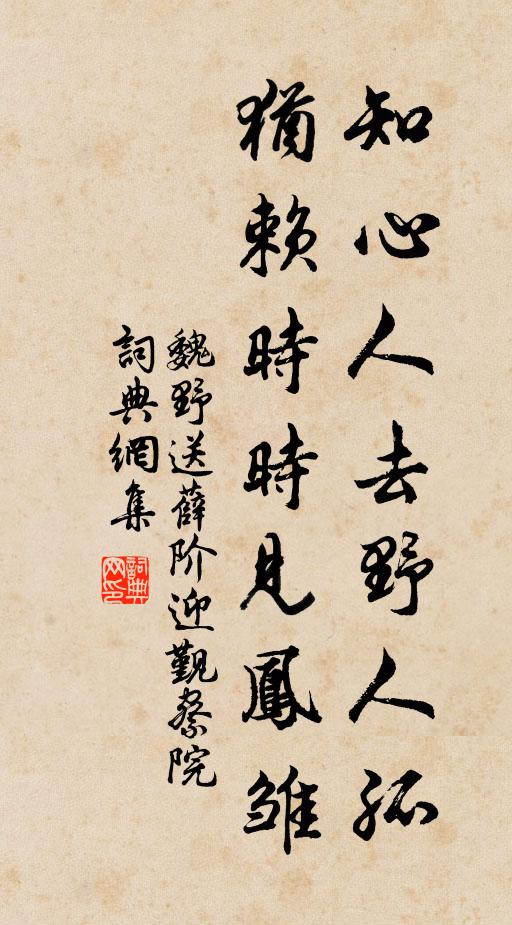 知心人去野人孤
猶赖時時見鳳雏
魏野送薛阶迎觐察院
詞典網集
詞典網印